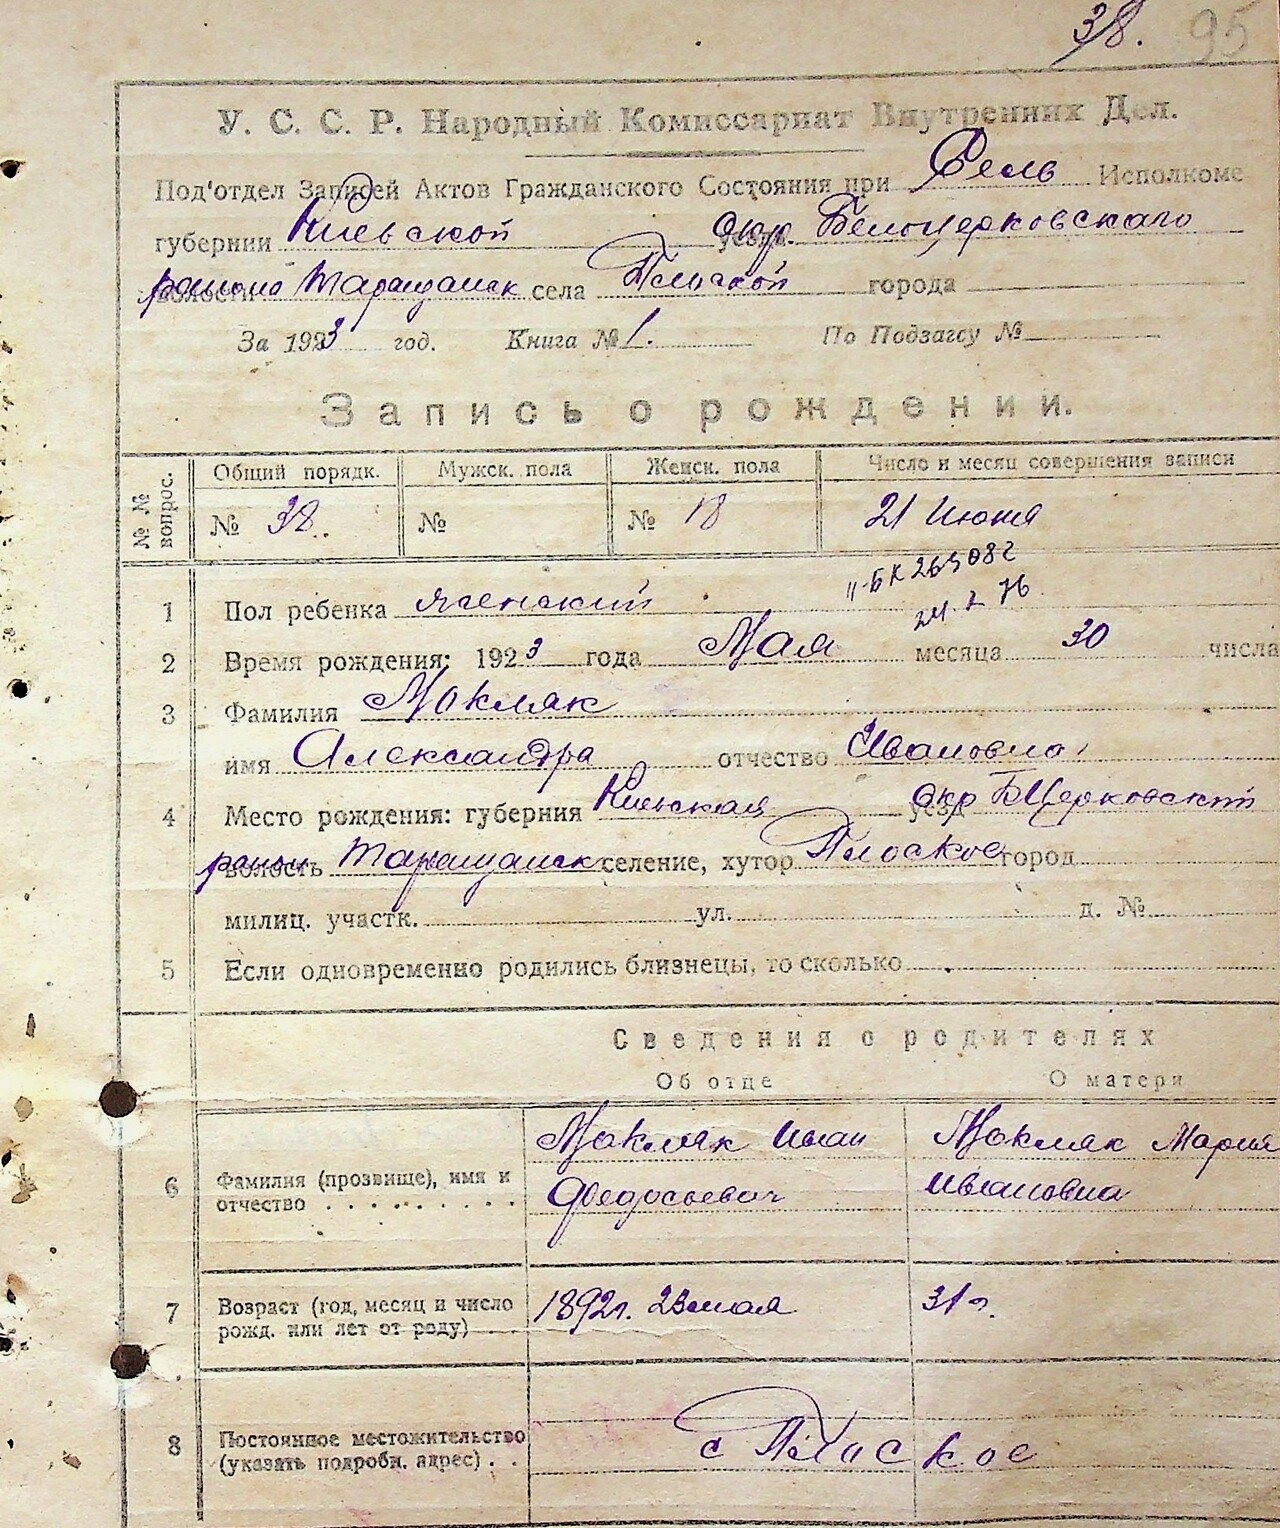 38. 95
У. С. С. Р. Народный Комиссариат Внутренних Дел.
Под'отдел Записей Актов Гражданского Состояния при Сель Исполкоме
губернии Киевской уезда окр Белоцерковского
волости района Таращанск села Плоской города
За 1923 год. Книга № 1. По Подзагсу №
Запись о рождении.
№ № вопрос. Общий порядк. Мужск. пола Женск. пола Число и месяц совершения записи
№ 38. № № 18 21 Июня
II-БК 265082
24. 2 76
1 Пол ребенка женский
2 Время рождения: 1923 года Мая месяца 30 числа
3 Фамилия Мокляк
имя Александра отчество Ивановна
4 Место рождения: губерния Киевская уезд окр БЦерковский
волость район Таращанск селение, хутор Плоское город
милиц. участк. ул. д. №
5 Если одновременно родились близнецы, то сколько
Сведения о родителях
Об отце О матери
6 Фамилия (прозвище), имя и отчество Мокляк Иван Федосьевич Мокляк Мария Ивановна
7 Возраст (год, месяц и число рожд. или лет от роду) 1892г. 23 мая 31 г.
8 Постоянное местожительство (указать подробн. адрес) с Плоское